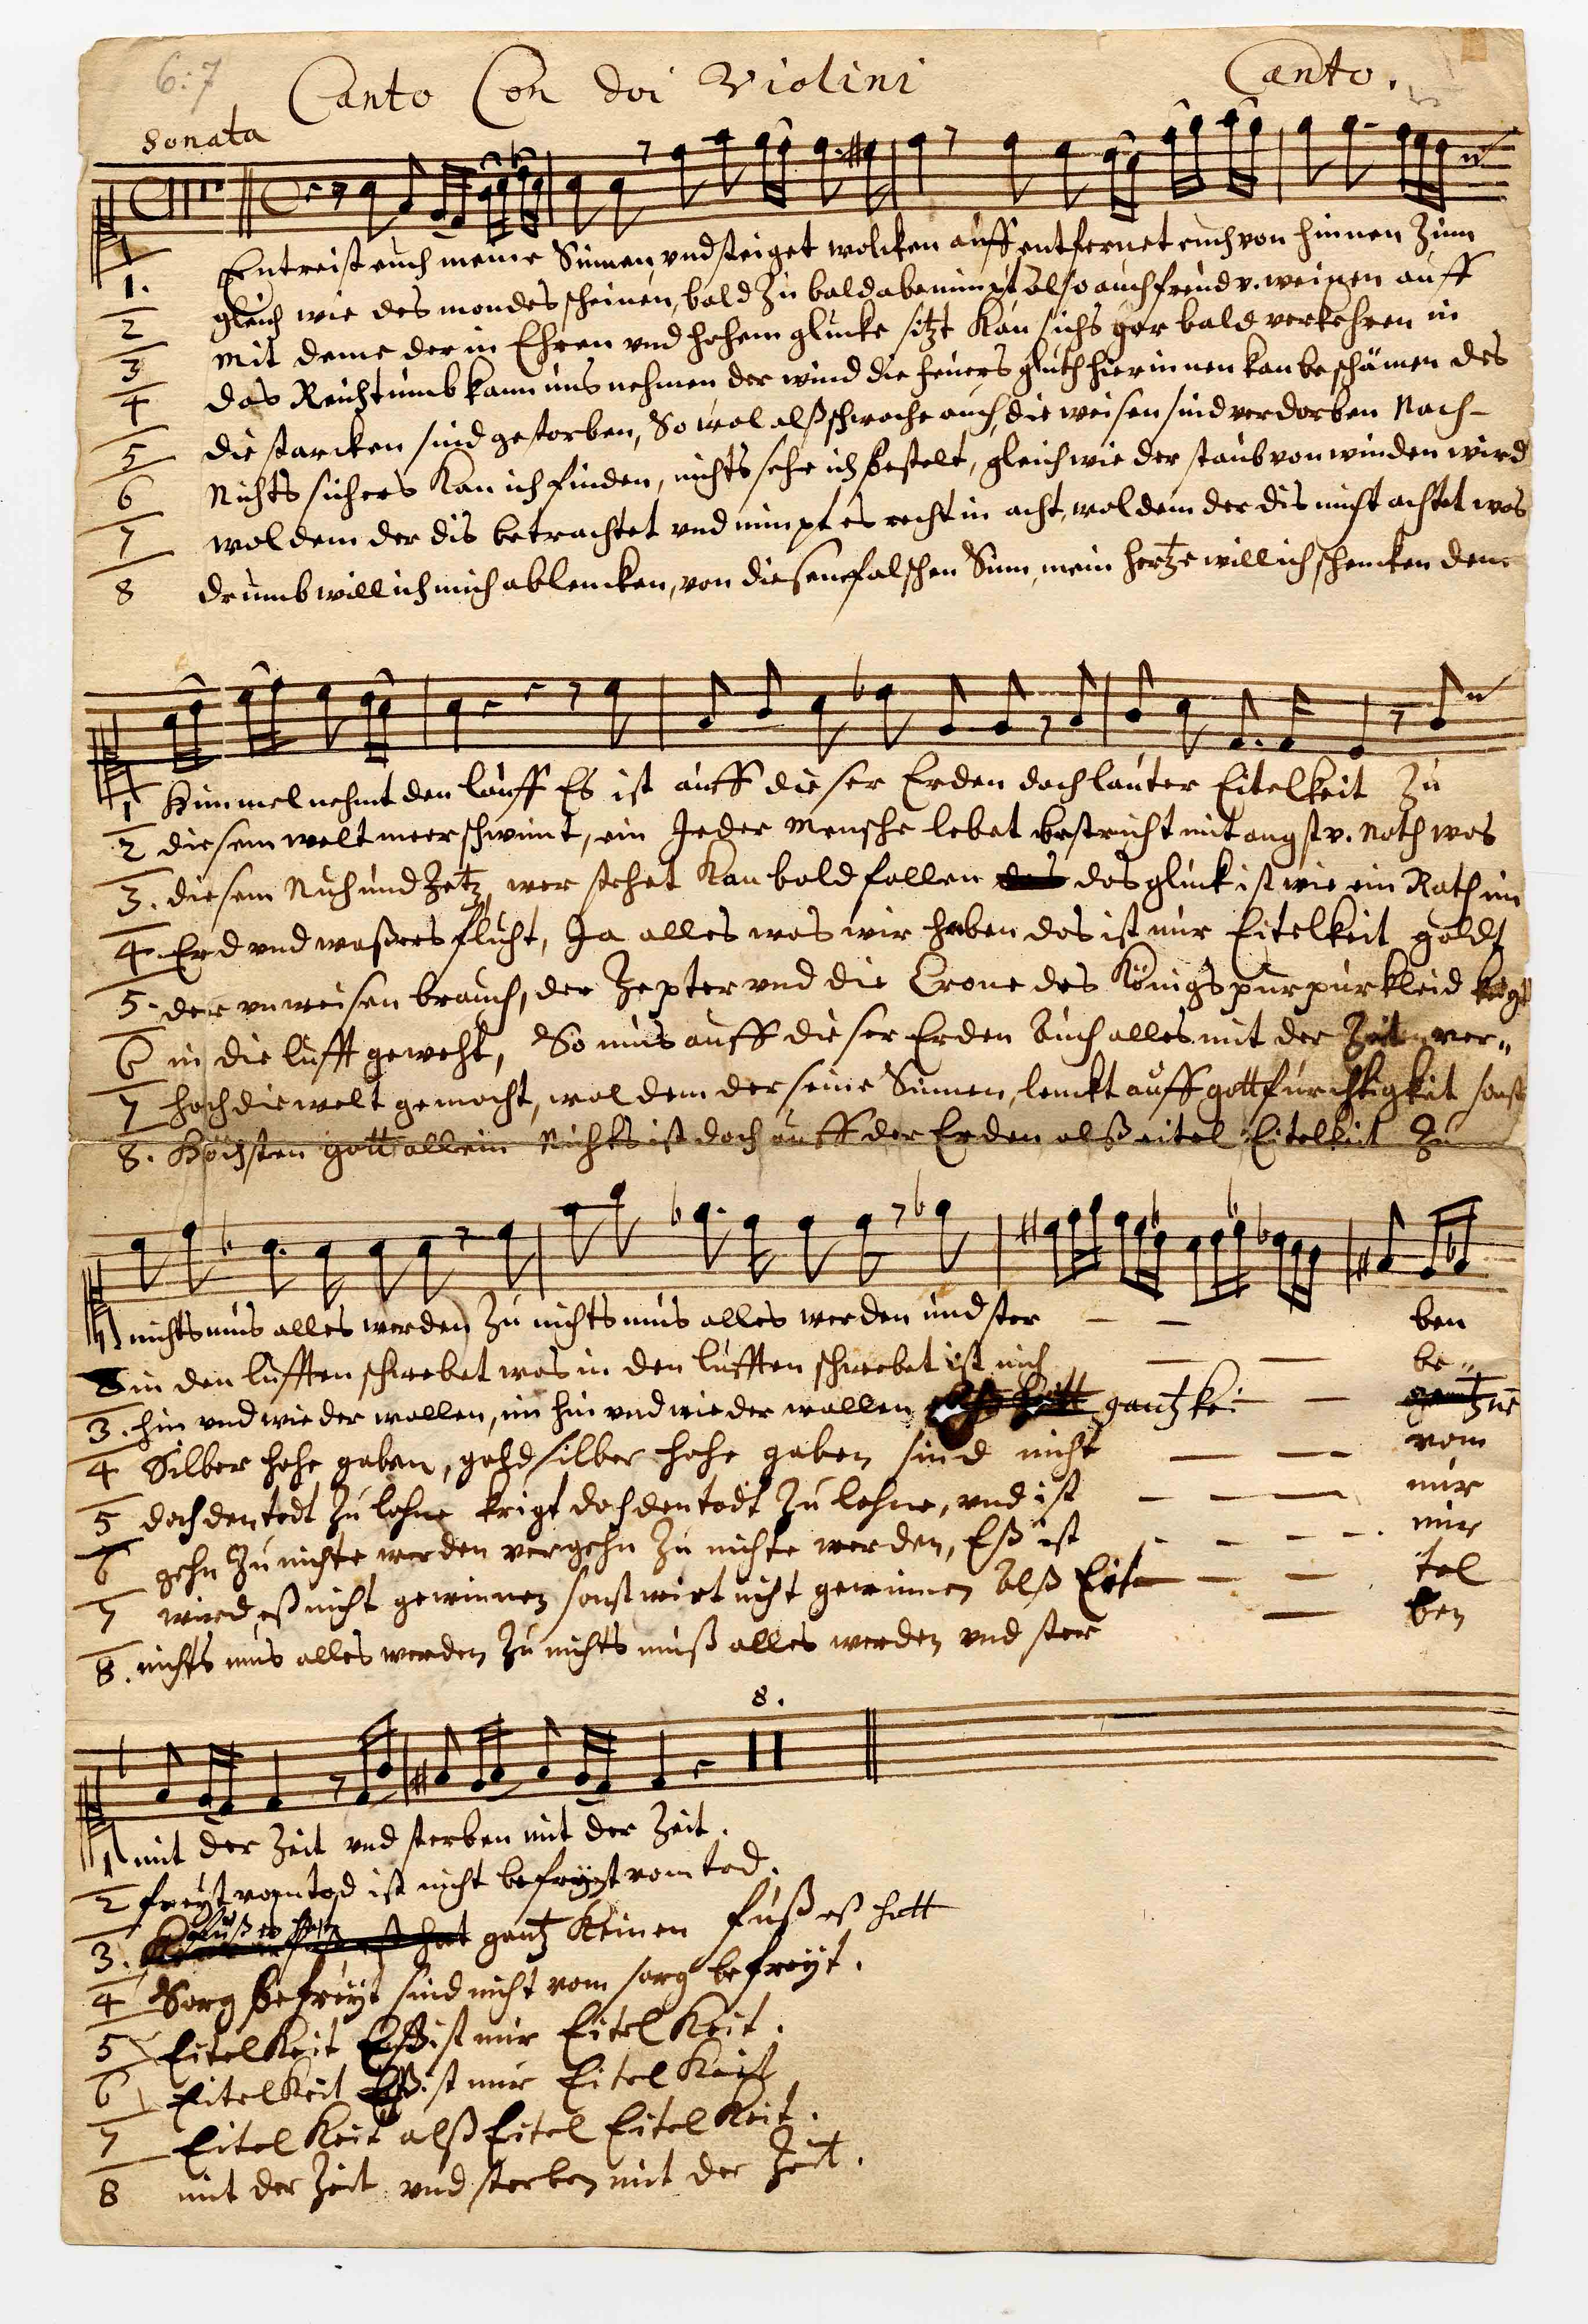 6:7
Canto Con doi Violini
Canto.
Sonata
1. Entreist euch meine Sinnen, vnd steiget wolcken auff entfernet euch von hinnen Zum
2 gleich wie des mondes scheinen, bald Zu bald abnimpt also auch freud v. weinen auff
3 Mit deme der in Ehren vnd hohem glucke sitzt Kan sichs gar bald verkehren in
4 das Reichtumb kann uns nehmen der wind die feuers gluth hierinnen kan beschämen des
5 die starcken sind gestorben, So wol alß schwache auch, die weisen sind verdorben Nach-
6 Nichts sichers Kan ich finden, nichts sehe ich bestelt, gleich wie der staub von winden wird
7 wol dem der dis betrachtet vnd nimpt es recht in acht, wol dem der dis nicht achtet was
8 drumb will ich mich ablencken, von diesem falschen Sinn, mein hertze will ich schencken dem
1 Himmel nehmt den lauff Es ist auff dieser Erden doch lauter Eitelkeit Zu
2 diesem welt meer schwimt, ein Jeder Mensche lebet bestricht mit angst v. Noth was
3. diesem Nuh und Jetz, wer stehet Kan bald fallen das das gluck ist wie ein Rath im
4 Erd vnd waßers flucht, Ja alles was wir haben das ist nur Eitelkeit goldt
5. der vnweisen brauch, der Zepter vnd die Crone des Königs purpurkleid krigt
6 in die lufft geweht, So mus auff dieser Erden auch alles mit der Zeit, ver"
7 hoch die welt gemacht, wol dem der seine Sinnen, lenckt auff gottfürchtigkeit sonst
8. Höchsten gott allein Nichts ist doch auff der Erden alß eitel Eitelkeit Zu
1 nichts mus alles werden Zu nichts mus alles werden und ster - - ben
2 in den lufften schwebet was in den lufften schwebet ist nich - - be"
3. hin vnd wieder wallen, im hin vnd wieder wallen gantz kei - - nē
4 Silber hohe gaben, gold silber hohe gaben sind nicht - - vom
5 doch den todt Zu lohne krigt doch den todt Zu lohne, vnd ist - - - nur
6 gehn Zu nichte werden vergehn Zu nichte werden, Eß ist - - - - nur
7 wird eß nicht gewinnen sonst wirt nicht gewinnen alß Eit - - tel
8. nichts mus alles werden Zu nichts muß alles werden vnd ster - ben
8.
1 mit der Zeit vnd sterben mit der Zeit.
2 freyt vom tod ist nicht befreyt vom tod.
3. fuß es hatt gantz Keinen fuß es hatt
4 Sorg befreyt sind nicht vom sorg befreyt.
5 Eitelkeit Eß ist nur Eitel Keit.
6 Eitelkeit Eß ist nur Eitel Keit
7 Eitel Keit alß Eitel Eitel Keit.
8 mit der Zeit vnd sterben mit der Zeit.